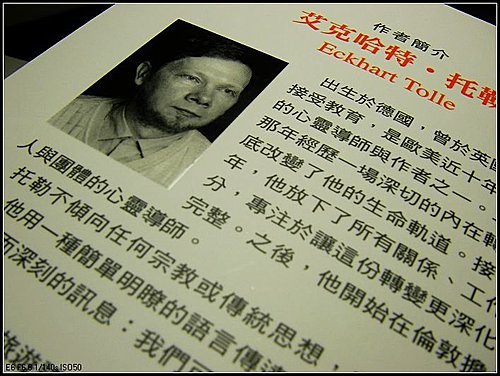 作者簡介
艾克哈特・托勒
Eckhart Tolle
出生於德國，曾於英國
接受教育，是歐美近十年
的心靈導師與作者之一。
那年經歷一場深切的內在轉
底改變了他的生命軌道。接
年，他放下了所有關係、工作
分，專注於讓這份轉變更深化
完整。之後，他開始在倫敦擔
人與團體的心靈導師。
托勒不傾向任何宗教或傳統思想，
他用一種簡單明瞭的語言傳達
而深刻的訊息：我們可
旅遊
ISO50